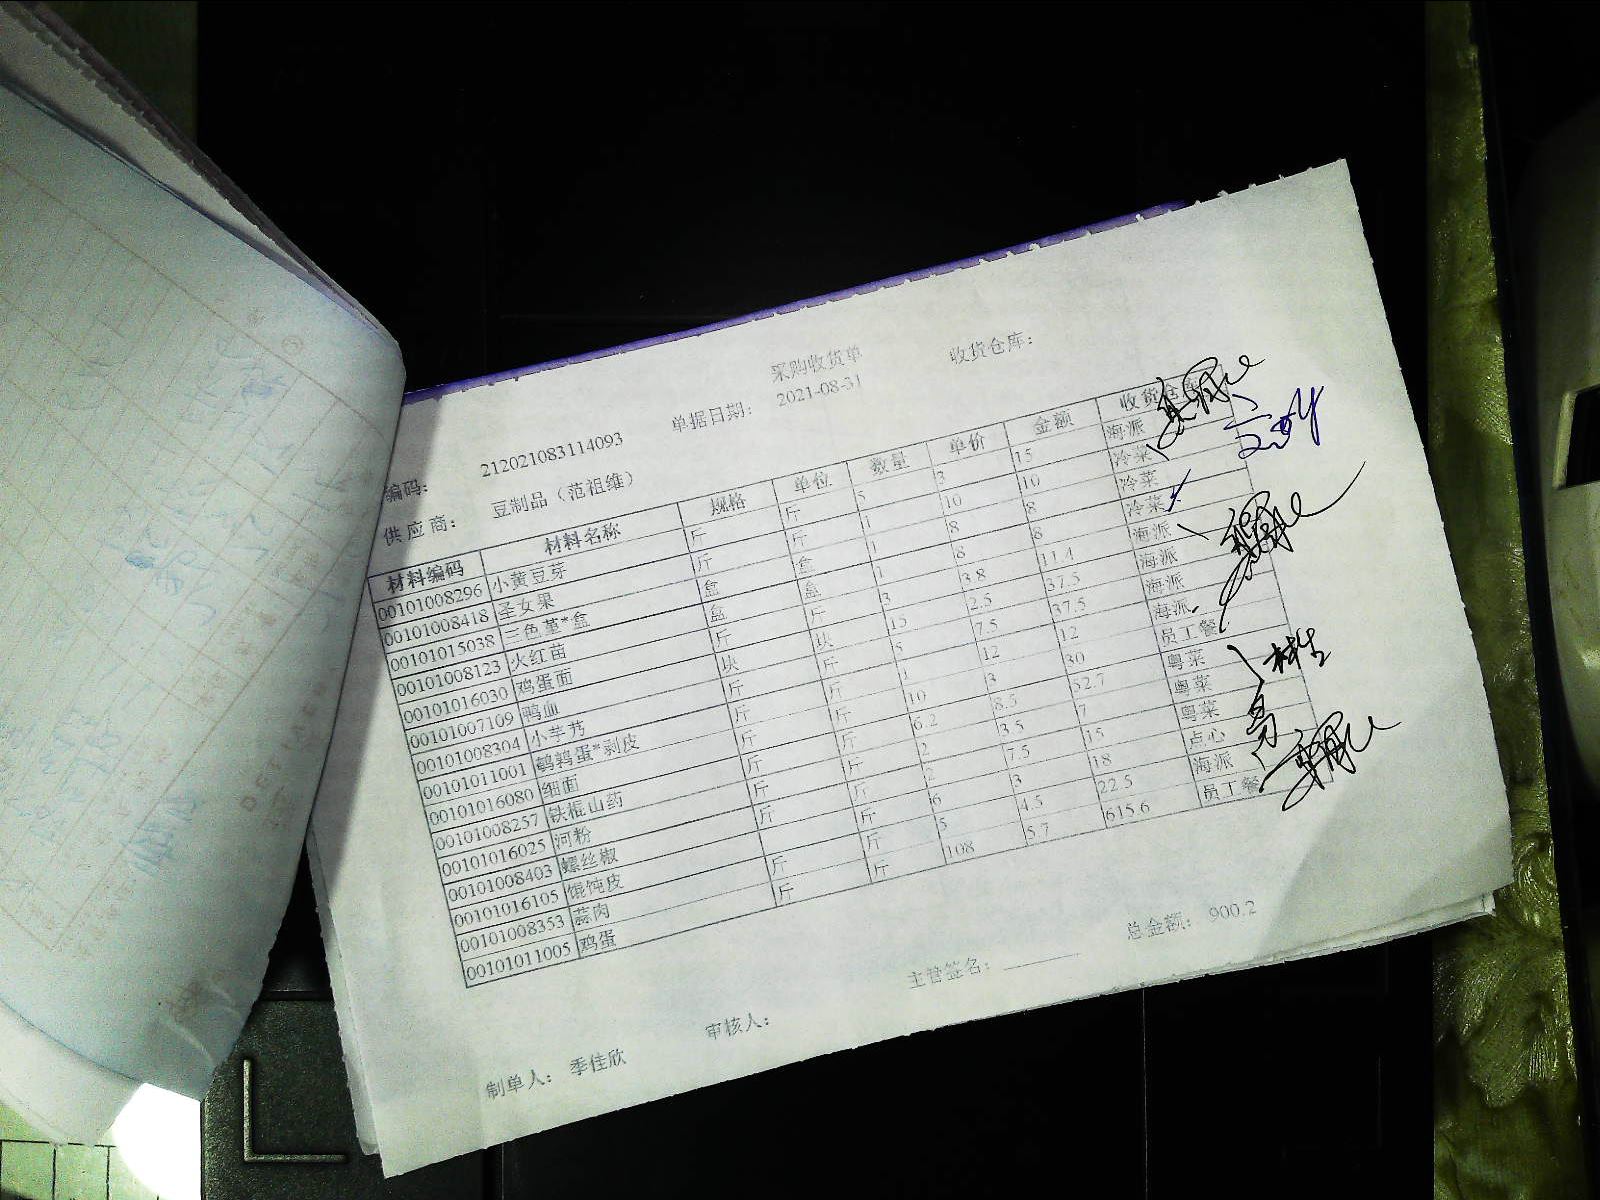 采购收货单
编码： 212021083114093 单据日期： 2021-08-31 收货仓库：
供应商： 豆制品（范祖维）
材料编码 材料名称 规格 单位 数量 单价 金额 收货仓库
00101008296 小黄豆芽 斤 斤 5 3 15 海派
00101008418 圣女果 斤 斤 1 10 10 冷菜
00101015038 三色堇*盒 盒 盒 1 8 8 冷菜
00101008123 火红苗 盒 盒 1 8 8 冷菜
00101016030 鸡蛋面 斤 斤 3 3.8 11.4 海派
00101007109 鸭血 块 块 15 2.5 37.5 海派
00101008304 小芋艿 斤 斤 5 7.5 37.5 海派
00101011001 鹌鹑蛋*剥皮 斤 斤 1 12 12 海派
00101016080 细面 斤 斤 10 3 30 员工餐
00101008257 铁棍山药 斤 斤 6.2 8.5 52.7 粤菜
00101016025 河粉 斤 斤 2 3.5 7 粤菜
00101008403 螺丝椒 斤 斤 2 7.5 15 粤菜
00101016105 馄饨皮 斤 6 3 18 点心
00101008353 蒜肉 斤 斤 5 4.5 22.5 海派
00101011005 鸡蛋 斤 斤 108 5.7 615.6 员工餐
总金额： 900.2
制单人： 季佳欣 审核人： 主管签名：